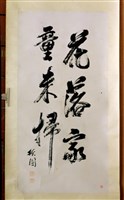 花落家
童未掃